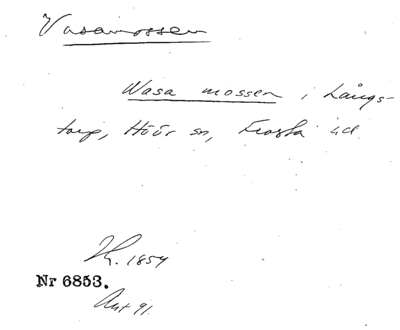 Vasamossen
Wasa mossen i Långs-
torp, Höör sn, Frosta hd.
H. 1854
Nr 6853.
Ant 91.